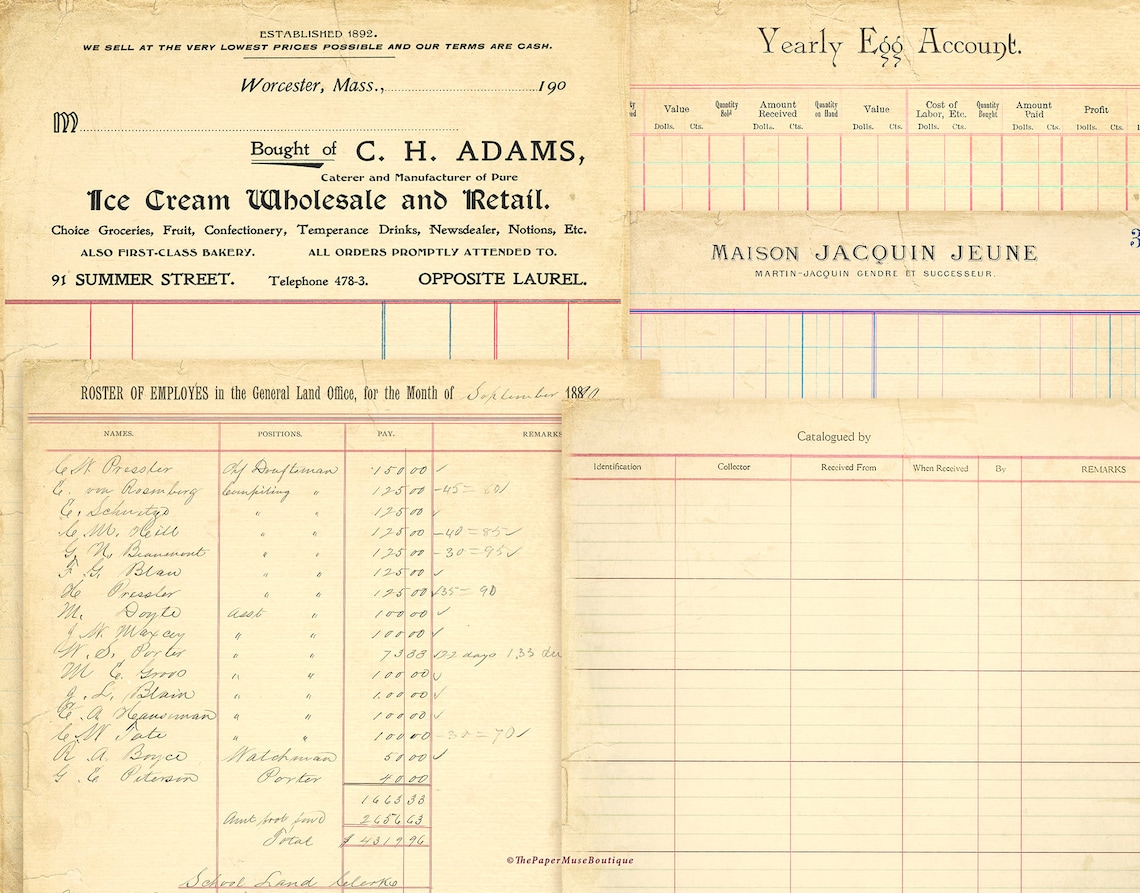 ESTABLISHED 1892.
WE SELL AT THE VERY LOWEST PRICES POSSIBLE AND OUR TERMS ARE CASH.
Worcester, Mass., 190
M
Bought of C. H. ADAMS,
Caterer and Manufacturer of Pure
Ice Cream Wholesale and Retail.
Choice Groceries, Fruit, Confectionery, Temperance Drinks, Newsdealer, Notions, Etc.
ALSO FIRST-CLASS BAKERY. ALL ORDERS PROMPTLY ATTENDED TO.
91 SUMMER STREET. Telephone 478-3. OPPOSITE LAUREL.
Yearly Egg Account.
Value Quantity Sold Amount Received Quantity on Hand Value Cost of Labor, Etc. Quantity Bought Amount Paid Profit
Dolls. Cts. Dolls. Cts. Dolls. Cts. Dolls. Cts. Dolls. Cts. Dolls. Cts.
MAISON JACQUIN JEUNE
MARTIN-JACQUIN GENDRE ET SUCCESSEUR.
3
ROSTER OF EMPLOYES in the General Land Office, for the Month of September 1880
NAMES. POSITIONS. PAY. REMARKS
C W Pressler Chf Draftsman 150 00 ✓
E. von Rosenberg Compiling " 125 00 -45=80✓
E. " " 125 00 ✓
C. M. Hill " " 125 00 -40=85✓
G. N. Beaumont " " 125 00 -30=95✓
F G. Blau " " 125 00 ✓
H Pressler " " 125 00 ✓35=90
M. Doyle Asst " 100 00 ✓
J W. Maxcey " " 100 00 ✓
W. S. Porter " " 73 33 22 days 1.33
M C. Groos " " 100 00 ✓
J. L. Blain " " 100 00 ✓
E. A Hauseman " " 100 00 ✓
C. W Tate " " 100 00 -30=70✓
R. A. Boyce Watchman 50 00 ✓
G E Peterson Porter 40 00
1663 33
Amt brot forwd 2656 63
Total $ 4319 96
School Land Clerks
Catalogued by
Identification Collector Received From When Received By REMARKS
©ThePaperMuseBoutique